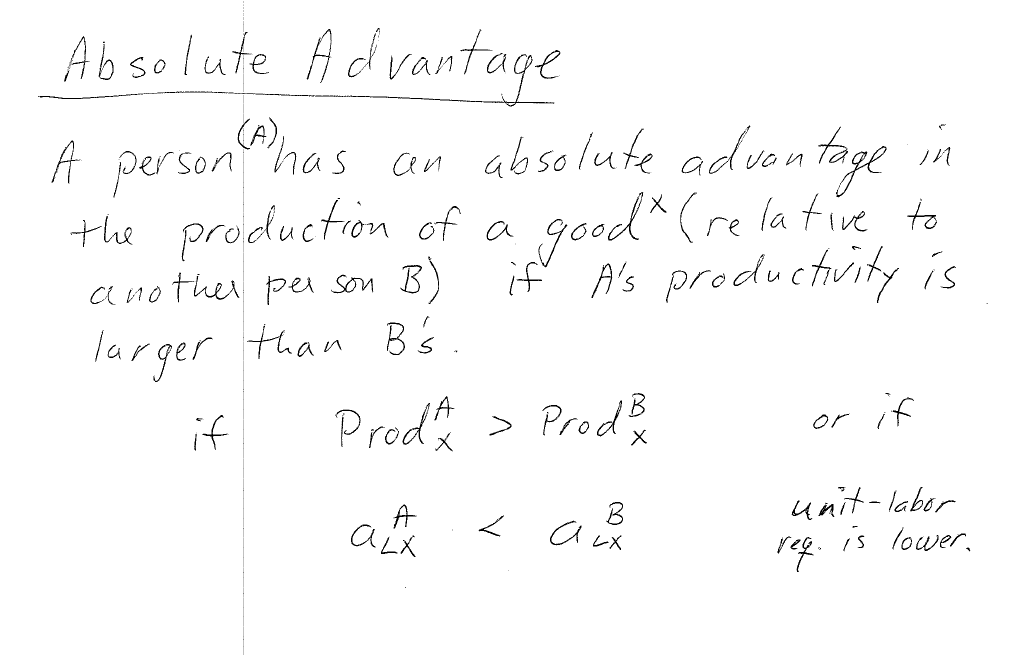 Absolute Advantage
A person (A) has an absolute advantage in
the production of a good X (relative to
another person B) if A's productivity is
larger than B's.
if Prod_X^A > Prod_X^B or if
a_LX^A < a_LX^B unit-labor
req. is lower.